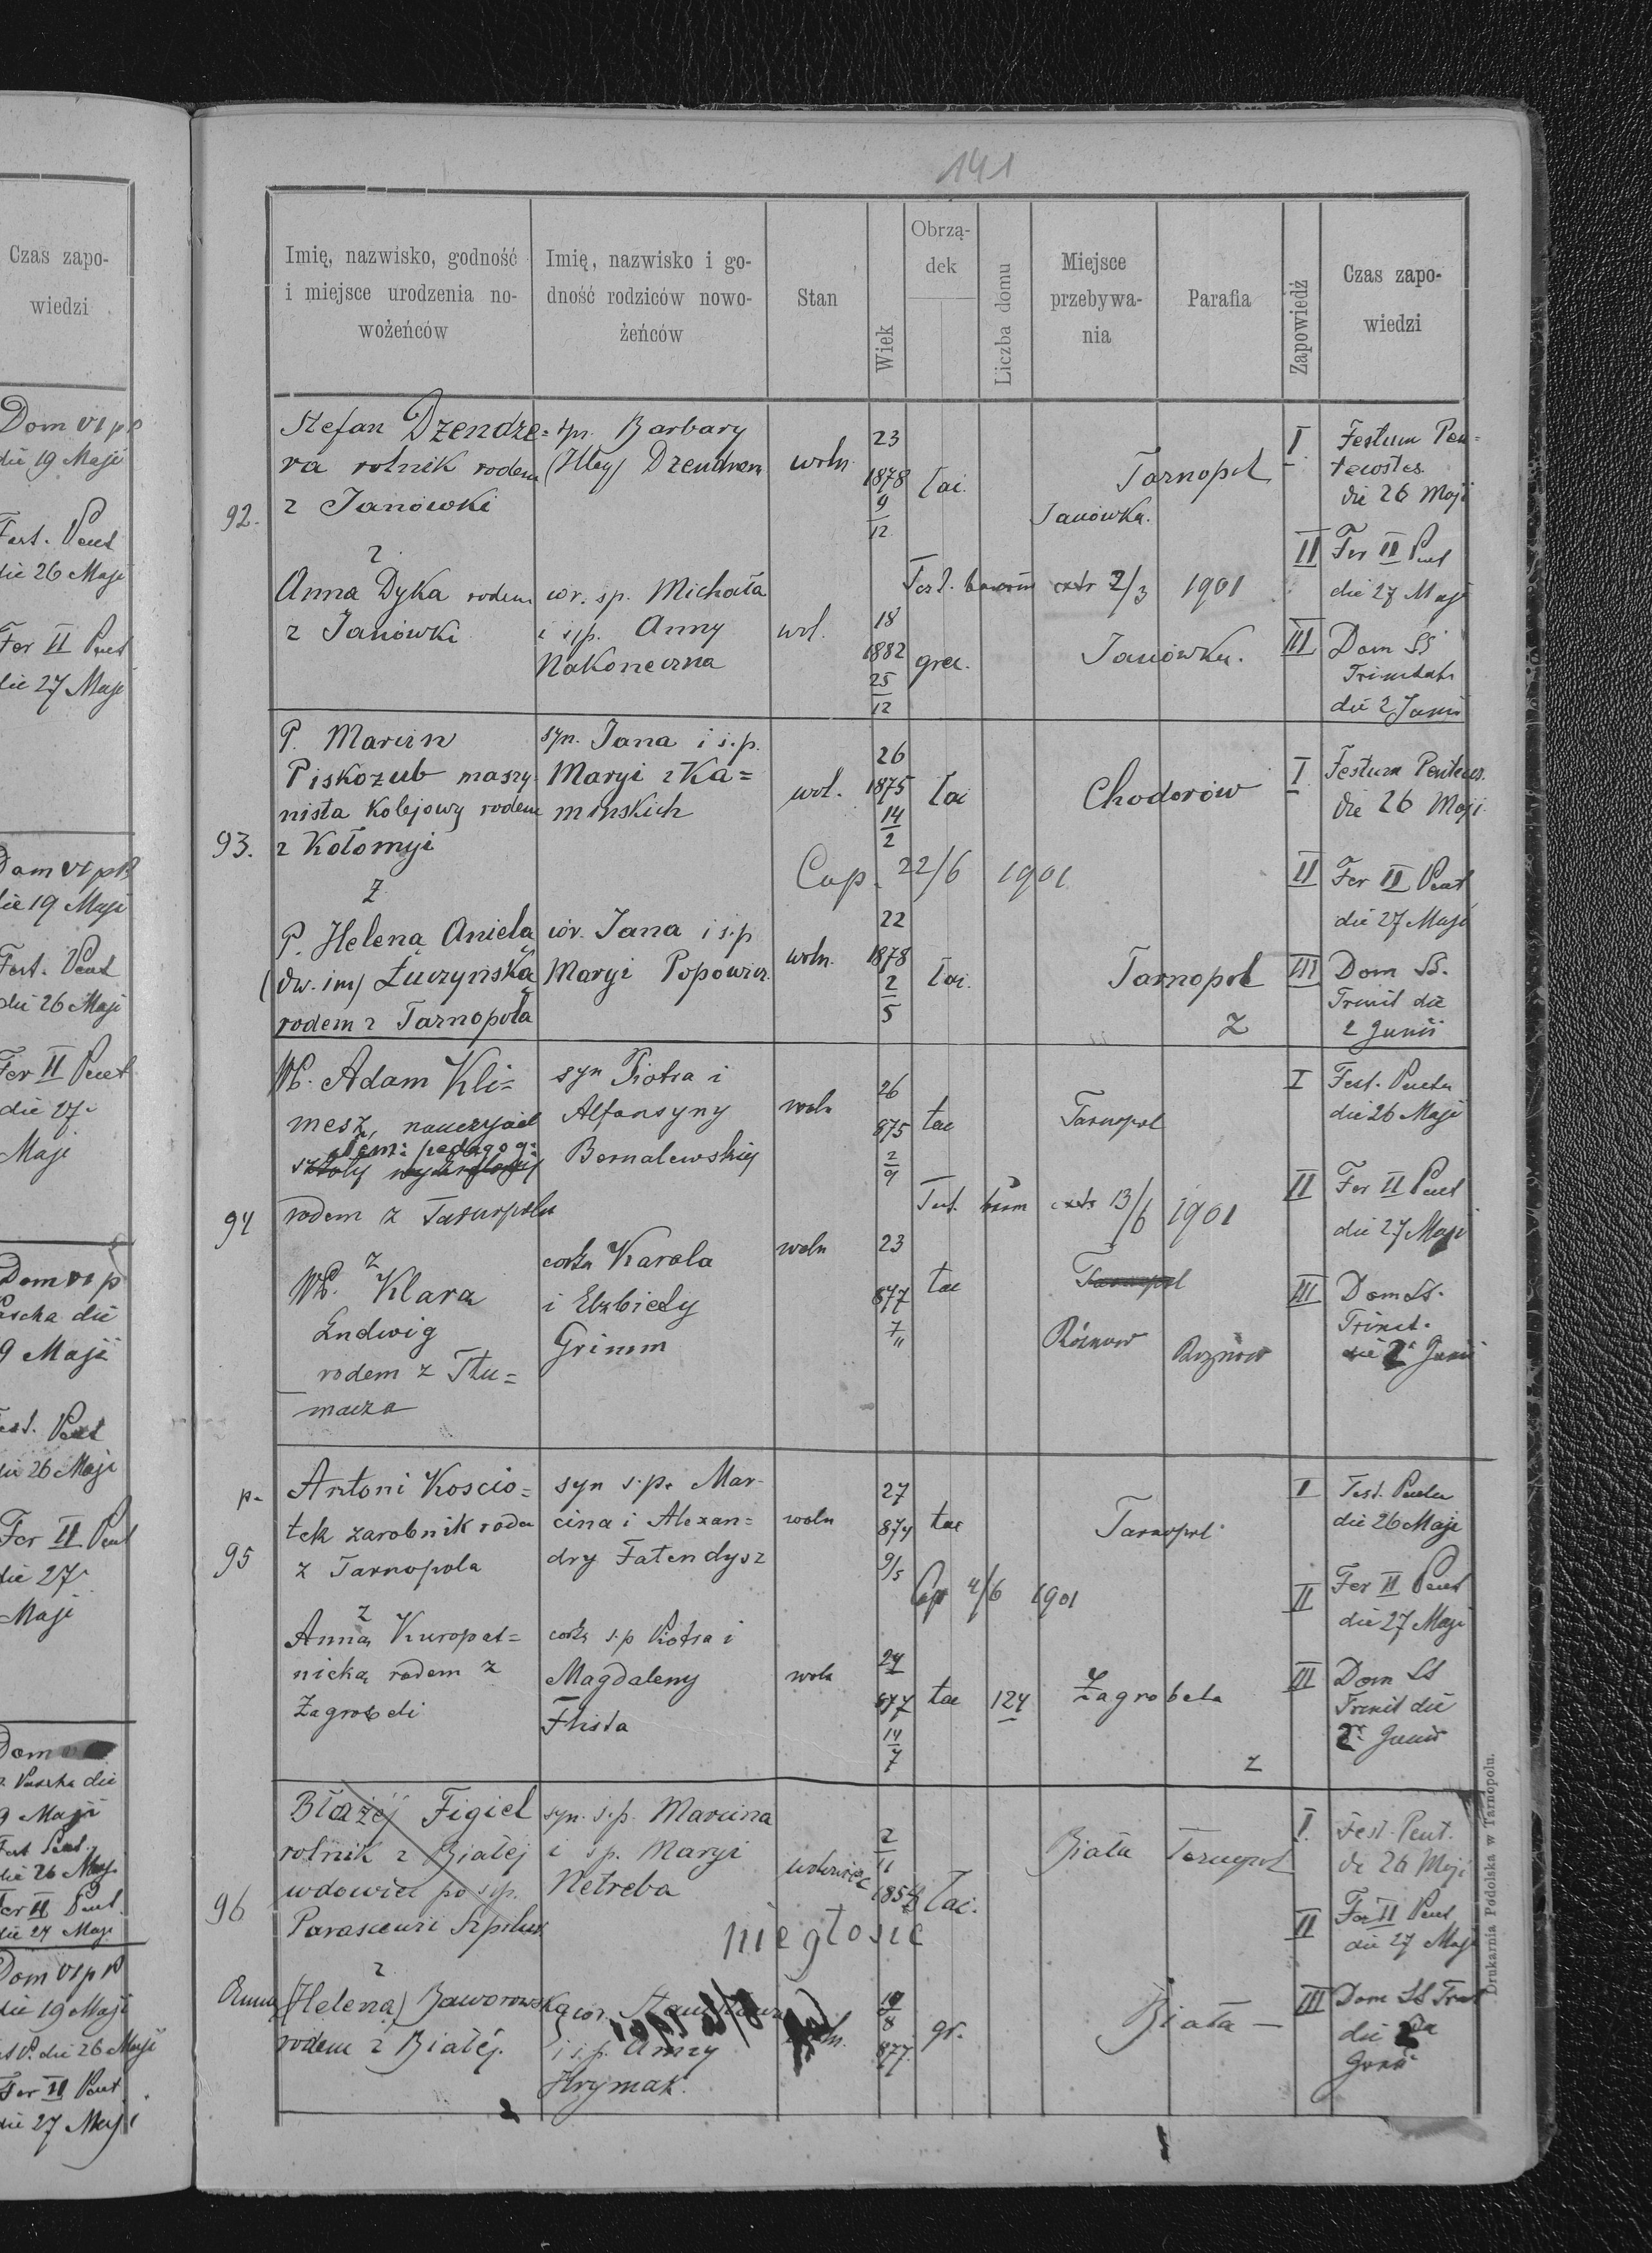 141
Czas zapo-
wiedzi
Dom VI p P
die 19 Maji
Fest. Pent
die 26 Maji
Fer II Pent
die 27 Maji
Dom VI p P
die 19 Maji
Fest. Pent
die 26 Maji
Fer II Pent
die 27
Maji
Dom VI p
Pascha die
9 Maji
Fest. Pent
die 26 Maji
Fer II Pent
die 27
Maji
Dom
Pascha die
9 Maji
Fest Pent.
die 26 Maji
Fer II Pent.
die 27 Maji
Dom VI p P
die 19 Maji
die 26 Maji
Fer II Pent
die 27 Maji
Imię, nazwisko, godność
i miejsce urodzenia no-
wożeńców
Imię, nazwisko i go-
dność rodziców nowo-
żeńców
Stan
Wiek
Obrzą-
dek
Liczba domu
Miejsce
przebywa-
nia
Parafia
Zapowiedź
Czas zapo-
wiedzi
92.
Stefan Dzendze=
ra rolnik rodem
z Janówki
z
Anna Dyka rodem
z Janówki
syn. Barbary
Dzendzera
cór. sp. Michała
i sp. Anny
Nakoneczna
woln.
wol.
23
1878
9
12
18
1882
25
12
łac.
grec.
Tarnopol
Janówka.
Test. 2/3 1901
Janówka.
I Festum Pen=
tecostes
die 26 Maji
II Fer II Pent
die 27 Maji
III Dom SS
Trinitatis
die 2 Junii
93.
P. Marcin
Piskozub maszy-
nista kolejowy rodem
z Kołomyi
z
P. Helena Aniela
(dw. im) Łuczyńska
rodem z Tarnopola
syn. Jana i s.p.
Maryi z Ka=
mińskich
cór. Jana i s.p
Maryi Popowicz
wol.
woln.
26
1875
14
2
22
1878
2
5
łac
łac.
Cop. 22/6 1901
Chodorów
Tarnopol
z
I Festum Pentecos.
die 26 Maji
II Fer II Pent
die 27 Maji
III Dom SS.
Trinit die
2 Junii
94
Wb. Adam Kli=
mesz, nauczyciel
sem: pedagog:
szkoły wydziałowej
rodem z Tarnopola
z
Wb. Klara
Ludwig
rodem z Tłu=
macza
syn Piotra i
Alfonsyny
Bernalewskiej
córka Karola
i Elżbiety
Grimm
woln
woln
26
875
2
9
23
877
7
11
łac
łac
Tarnopol
Test. 13/6 1901
Tarnopol
Rożnow
Rożnow
I Fest. Pente
die 26 Maji
II Fer II Pent
die 27 Maji
III Dom SS.
Trinit.
die 2 Junii
p.
95
Antoni Koscio=
łek zarobnik rodem
z Tarnopola
z
Anna Kuropat=
nicka rodem z
Zagrobeli
syn s.p. Mar-
cina i Alexan=
dry Fatendysz
córka s.p Piotra i
Magdaleny
Flista
woln
woln
27
874
9/5
24
877
14
7
łac
łac
124
Cop 4/6 1901
Tarnopol
Zagrobela
z
I Fest. Pente
die 26 Maji
II Fer II Pent
die 27 Maji
III Dom SS
Trinit die
2 Junii
96
Błażej Figiel
rolnik z Białej
wdowiec po s.p.
z
Anna (Helena) Baworowska
rodem z Białej.
syn. s.p. Marcina
i sp. Maryi
Netreba
cór.
i s.p. Anny
Hrymak.
wdowiec
nie głosić
2
11
1858
łac.
8
877
gr.
Biała Tarnopol
Biała
I. Fest. Pent.
die 26 Maji
II Fer II Pent
die 27 Maji
III Dom SS Trinit
die 2
Junii
Drukarnia Podolska w Tarnopolu.